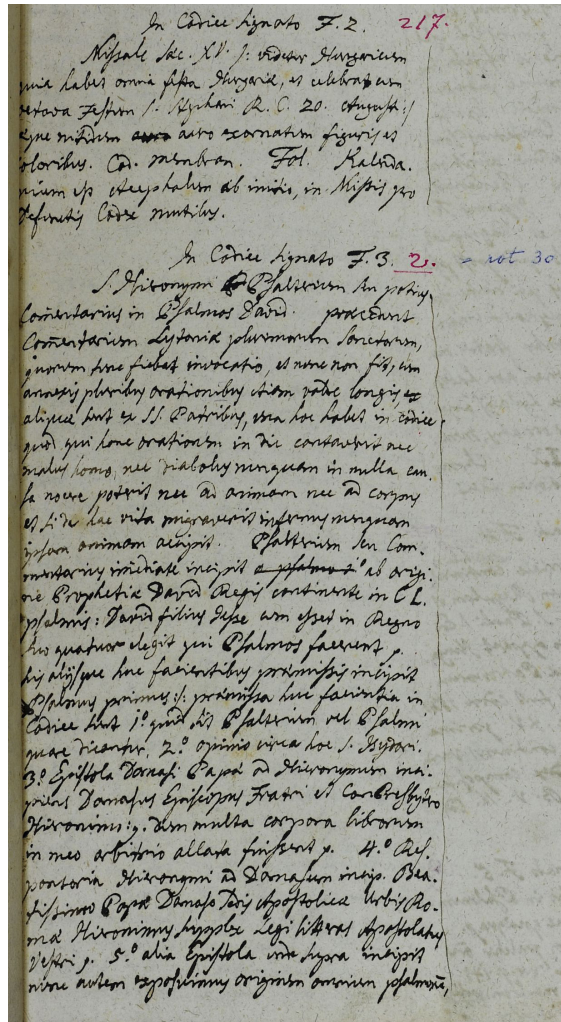 In Codice signato F. 2. 217.
Missale Sæc. XV. /: videtur Hungaricum
quia habet omnia festa Hungariæ, et celebratum
Festum S. Stephani R. C. 20. Augusti :/
nitidum auro exornatum figuris et
coloribus. Cod. membran. Fol. Kalenda-
rium est Acephalum ab initio, in Missis pro
Defunctis Codex mutilus.
In Codice signato F. 3. 2. = not 30
S. Hieronymi Psalterium seu potius
Comentarius in Psalmos David. præcedunt
Comentarium Lytaniæ plurimorum Sanctorum,
quorum tunc fiebat invocatio, et nunc non fit, cum
annexis pluribus orationibus etiam valde longis et
aliquæ sunt ex SS. Patribus, una hoc habet in codice
quod qui hanc orationem in die cantaverit nec
malus homo, nec diabolus nunquam in nulla cau-
sa nocere poterit nec ad animam nec ad corpus
et si de hac vita migraverit infernus nunquam
ipsam animam accipit. Psalterium seu Com-
mentarius imediate incipit a psalmo 1º ab origi-
ne Prophetiæ David Regis continente in CL.
psalmis: David filius Jesse cum esset in Regno
suo quatuor elegit qui Psalmos facerent p.
his alijsque huc facientibus præmissis incipit
Psalmus primus: /: præmissa huc facientia in
Codice sunt 1º quid sit Psalterium vel Psalmi
quare dicantur, 2º opinio circa hoc S. Isydori.
3º Epistola Damasi Papæ ad Hieronymum inci-
piens Damasus Episcopus Fratri et ConPresbytero
Hieronimo: p. dum multa corpora librorum
in meo arbitrio allata fuissent p. 4º Res-
ponsoria Hieronymi ad Damasum incip. Bea-
tissimo Papæ Damaso Sedis Apostolicæ Urbis Ro-
mæ Hieronimus supplex Legi litteras Apostolatus
Vestri p. 5º alia Epistola unde supra incipit
nunc autem exposuimus originem omnium psalmorũ,